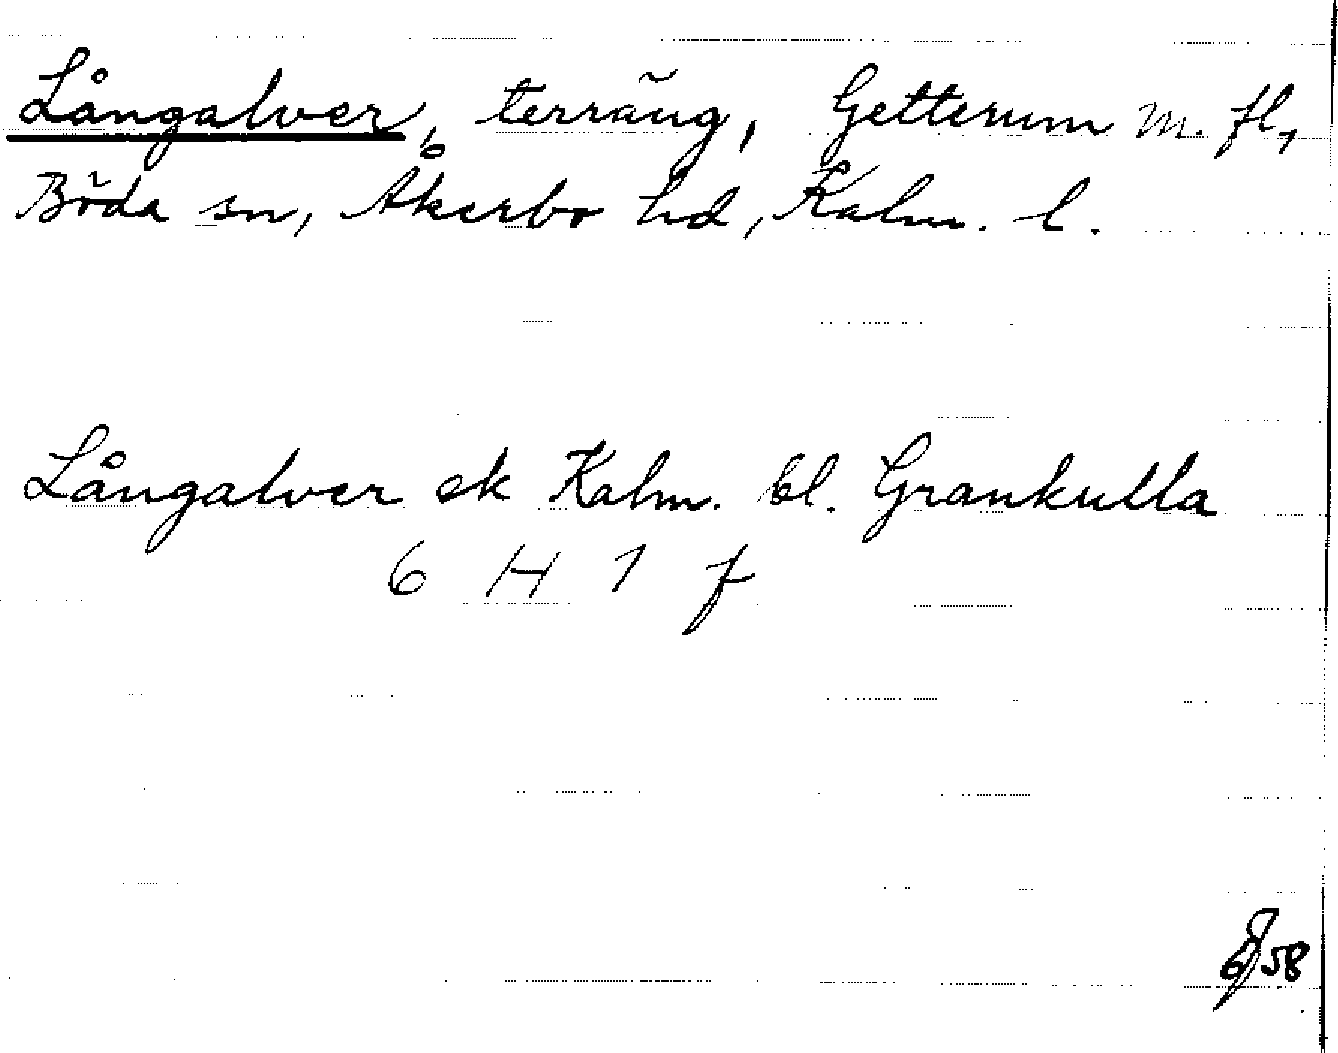 Långalver, terräng, Getterum m. fl,
Böda sn, Åkerbo hd, Kalm. l.
Långalver ek Kalm. bl. Grankulla
6 H 1 f
58